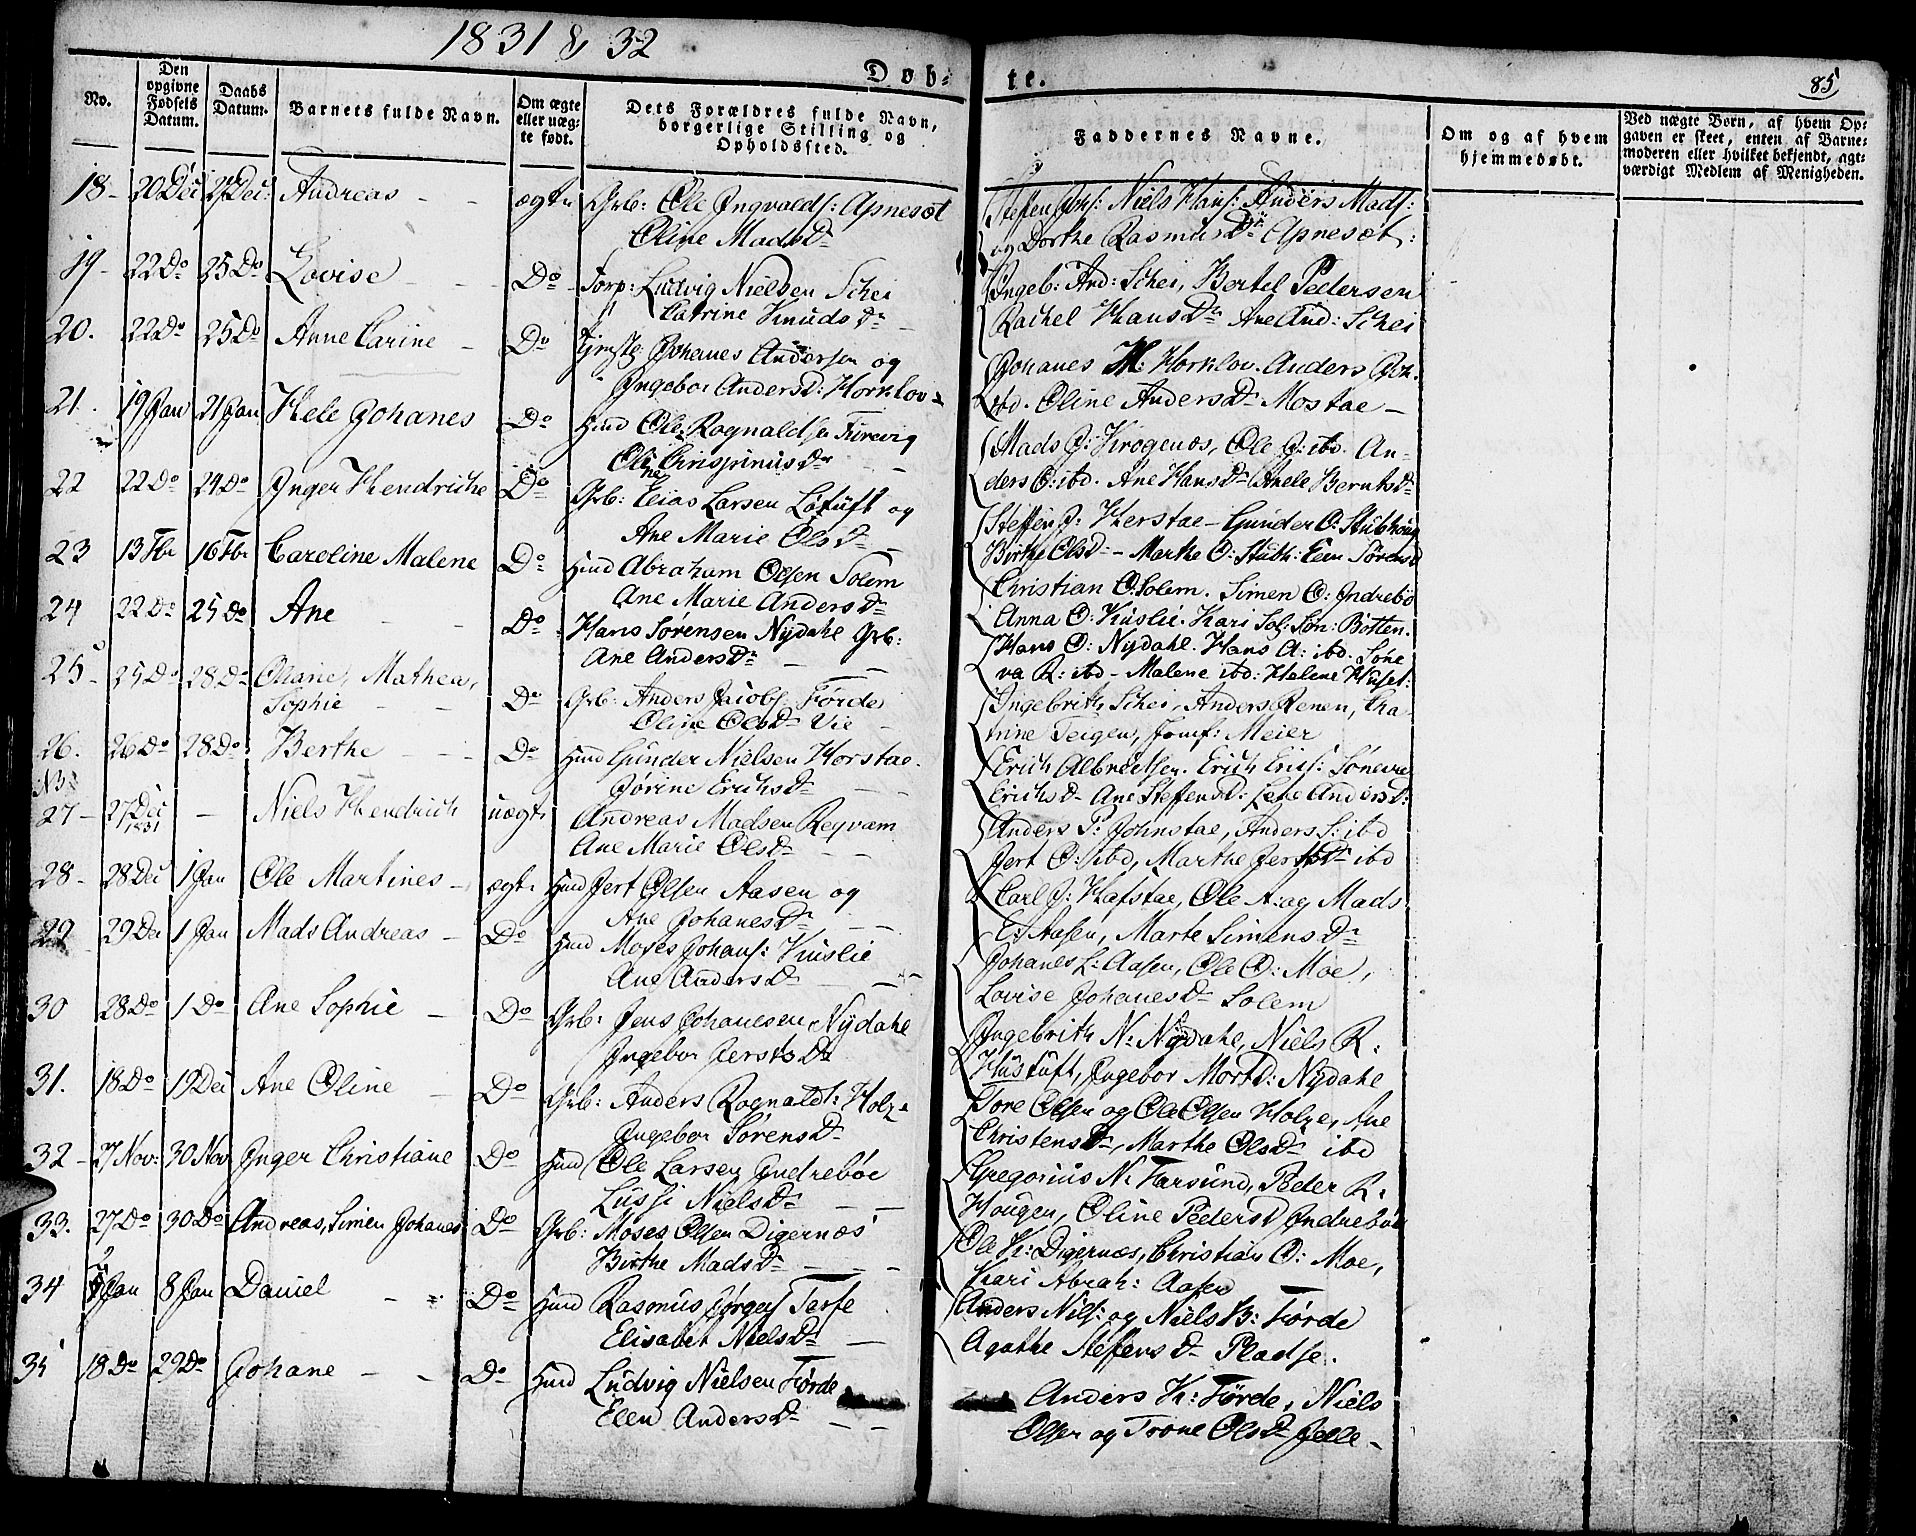 1831 & 32
Døb-
te.
85
No.
Den opgivne Fødsels Datum.
Daabs Datum.
Barnets fulde Navn.
Om ægte eller uæg-te født.
Dets Forældres fulde Navn, borgerlige Stilling og Opholdssted.
Faddernes Navne.
Om og af hvem hjemmedøbt.
Ved uægte Børn, af hvem Op-
gaven er skeet, enten af Barne-
moderen eller hvilket bekjendt, agt-
værdigt Medlem af Menigheden.
18 - 20 Dec 25 Dec: Andreas - - ægte Grb: Ole Ingvalds: Apneset
Oline Mads Dr
Steffen Joh: Niels Hans: Anders Mads:
og Dorthe Rasmus Dr Apneset:
19 - 22 Do 25 Do Lovise - - - Do Torp: Ludvig Nielsen Schei
Catrine Knuds Dr
Ingeb: And: Schei, Bertel Pedersen
Rachel Hans Dr Ane And: Schei
20. 22 Do 25 Do Anne Carine - Do Johanes Andersen og
Ingebor Anders D: Horklov -
Johanes M: Horklov. Anders Joh.
ibd. Oline Anders Dr Mostae -
21. 19 Jan 21 Jan Hele Johanes Do Huus Ole Rognaldsen Furevig
Oline Crispinus Dr
Mads J: Krogenæs, Ole J: ibd. An-
ders O: ibd. Ane Hans Dr Anele Bernts Dr
22 22 Do 24 Do Inger Hendriche Do Grb: Elias Larsen Løtuft og
Ane Marie Ols Dr -
Steffen J: Herstae - Gunder O: Stubhoug
Birthe Ols Dr - Marthe O: Stubh: Elen Sørens D
23 13 Fbr 16 Fbr Caroline Malene Do Huus Abraham Olsen Solem
Ane Marie Anders Dr
Christian O: Solem. Simen O: Indrebø
Anna O: Kuslie. Kari Sol: Søn: Botten.
24 22 Do 25 Do Ane - - Do Hans Sørensen Nydahl Grb:
Ane Anders Dr - -
Hans O: Nydahl. Hans A: ibd. Søne
va R: ibd - Malene ibd: Helene Huset:
25 - 25 Do 28 Do Oliane, Mathea,
Sophie - - Do Grb: Anders Jacobs: Førde
Oline Ols Dr Vie -
Ingebrith Schei, Anders Renen, Cha-
trine Teigen, Jomf: Meier
26. 26 Do 28 Do Berthe - - Do Huus Gunder Nielsen Horstae.
Jørine Erichs Dr - -
Erich Albrectsen. Erich Erichs: Søneva
Erichs Dr Ane Steffens D: Lene Anders D:
NB:
27 - 27 Dec
1831 - Niels Hendrich uægte Andreas Madsen Reqvam
Ane Marie Ols Dr - -
Anders P: Johnstae, Anders S: ibd
Jert O: ibd, Marthe Jerts Dr ibd
28 - 28 Dec 1 Jan Ole Martines - ægte Huus Jert Olsen Aasen og
Ane Johanes Dr - -
Carl J: Hafstae, Ole A: og Mads
E: Aasen, Marte Simens Dr
29 29 Dec 1 Jan Mads Andreas - Do Huus Moses Johans: Kuslie
Ane Anders Dr - -
Johanes L: Aasen, Ole O: Moe,
Lovise Johanes Dr Solem
30 28 Do 1 Do Ane Sophie - Do Grb: Jens Johanesen Nydahl
Ingebor Jerts Dr
Ingebrith N: Nydahl, Niels R:
Hustuft, Ingebor Mort D: Nydahl
31. 18 Do 19 Dec Ane Oline - Do Grb: Anders Rognalds: Holze
Ingebor Sørens Dr
Tore Olsen og Ole Olsen Holze, Ane
Christens Dr, Marthe Ols Dr ibd
32 - 27 Nov: 30 Nov Inger Christiane Do Huus Ole Larsen Indrebøe
Lussi Niels Dr - -
Gregorius N: Farsund, Peder R:
Hougen, Oline Peders D Indrebøe
33. 27 Do 30 Do Andreas, Simen Johanes Do Grb: Moses Olsen Digernæs
Birthe Mads Dr - - -
Ole H: Digernæs, Christian O: Moe,
Kari Abrah: Aasen
34 Jan 8 Jan Daniel - - Do Huus Rasmus Jørgens Terfe
Elisabet Niels Dr -
Anders Nils: og Niels B: Førde
Agathe Steffens Dr Pladse.
35 18 Do 29 Do Johane - - Do Huus Ludvig Nielsen Førde
Elen Anders Dr - -
Anders K: Førde, Niels
Olsen og Trone Ols Dr Jelle -